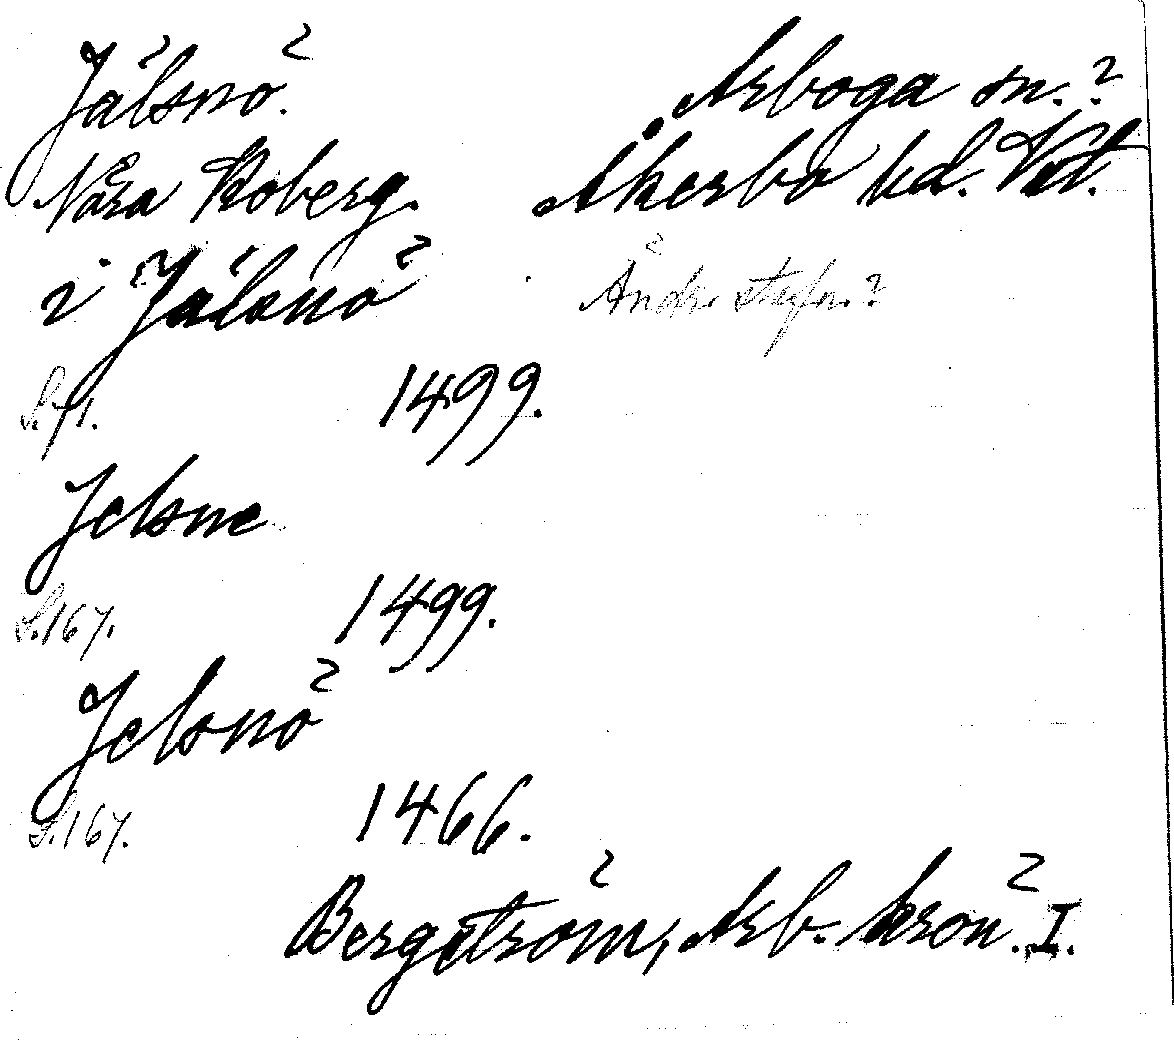 Jälsnö. Arboga sn.?
Nära Roberg. Åkerbo hd. Vstl.
i Jälsnö Ändr. stafn.?
S. 71. 1499.
Jelsne
S. 167. 1499.
Jelsnö
S. 167. 1466.
Bergström, Arb. krön. I.